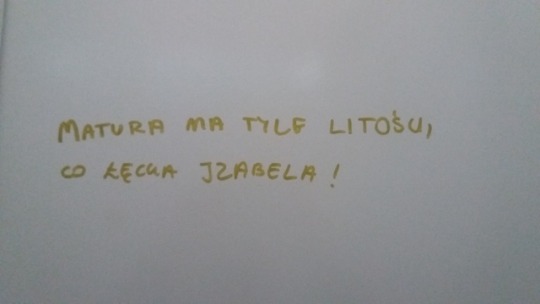 MATURA MA TYLE LITOŚCI,
CO ŁĘCKA IZABELA!